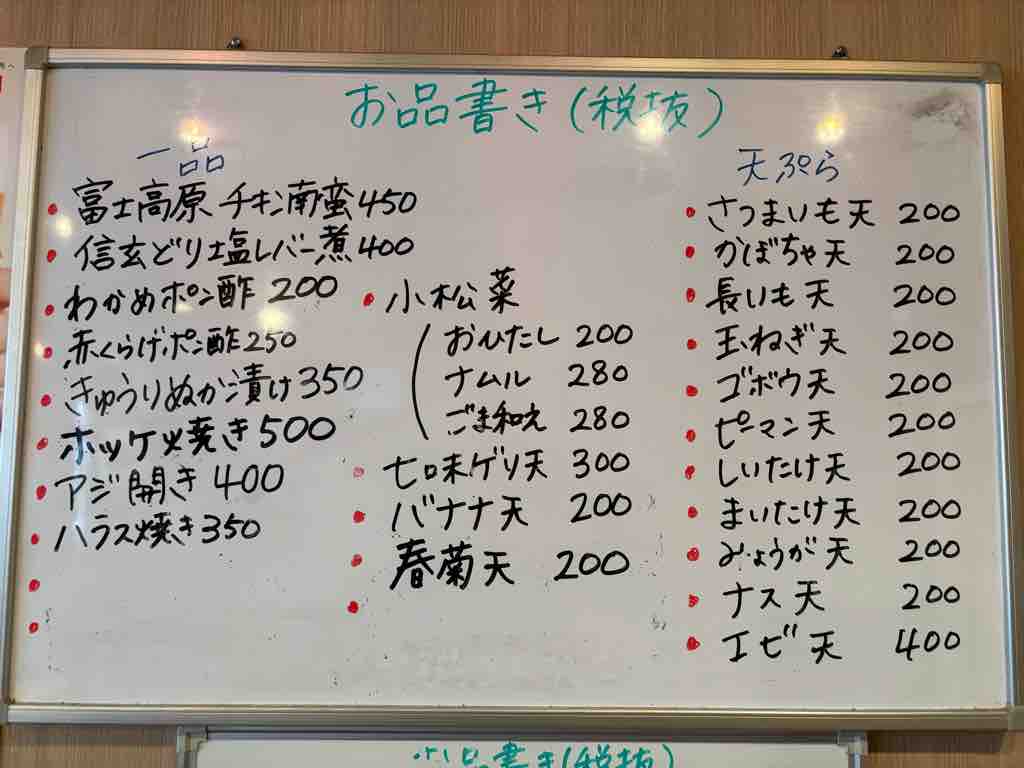 お品書き(税抜)
一品
富士高原チキン南蛮450
信玄どり塩レバー煮400
わかめポン酢 200
赤くらげポン酢250
きゅうりぬか漬け350
ホッケ焼き500
アジ開き400
ハラス焼き350
小松菜
おひたし 200
ナムル 280
ごま和え 280
七味ゲソ天 300
バナナ天 200
春菊天 200
天ぷら
さつまいも天 200
かぼちゃ天 200
長いも天 200
玉ねぎ天 200
ゴボウ天 200
ピーマン天 200
しいたけ天 200
まいたけ天 200
みょうが天 200
ナス天 200
エビ天 400
お品書き(税抜)